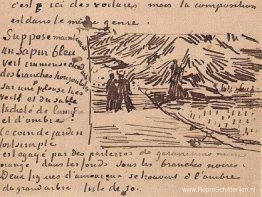 c'est ici des voilures mais la composition
est dans le même genre.
Suppose maintenant
un Sapin bleu
vert immense
des branches horizontales
sur une pelouse très
verte et du sable
tacheté de lumière
et d'ombre
Ce coin de jardin
fort simple
est égayé par des parterres de géraniums mine
orange dans les fonds sous les branches noires.
Deux figures d'amoureux se trouvent à l'ombre
du grand arbre toile de 30.
www.ReproSchilderijen.nl